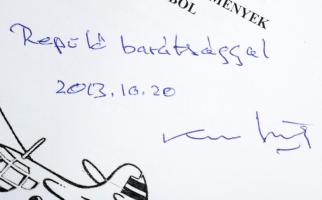 MÉNYEK
BÓL
Repülő barátsággal
2013.10.20